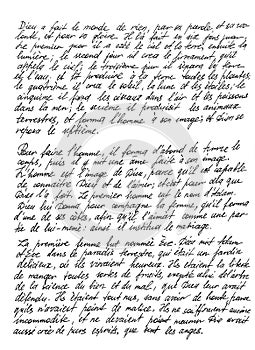 Dieu a fait le monde de rien, par sa parole, et sa vo-
lonté, et pour sa gloire. Il l'a fait en six jours.
Le premier jour il a créé le ciel et la terre, ensuite la
lumière; le second jour il créa le firmament, qu'il
appela le ciel; le troisième jour il sépara la terre
et l'eau, et fit produire à la terre toutes les plantes;
le quatrième il créa le soleil, la lune et les étoiles; le
cinquième il forma les oiseaux dans l'air et les poissons
dans la mer; le sixième il produisit les animaux
terrestres, et forma l'homme à son image; et Dieu se
reposa le septième.
Pour faire l'homme, il forma d'abord de terre le
corps, puis il y mit une âme faite à son image.
L'homme est l'image de Dieu, parce qu'il est capable
de connaître Dieu et de l'aimer; et c'est pour cela que
Dieu l'a fait. Le premier homme eut le nom d'Adam.
Dieu lui donna pour compagne la femme, qu'il forma
d'une de ses côtes, afin qu'il l'aimât comme une par-
tie de lui-même: ainsi il institua le mariage.
La première femme fut nommée Ève. Dieu mit Adam
et Ève dans le paradis terrestre, qui était un jardin
délicieux, où ils vivaient heureux. Ils étaient la liberté
de manger toutes sortes de fruits, excepté celui de l'arbre
de la science du bien et du mal, que Dieu leur avait
défendu. Ils étaient tout nus, sans avoir de honte parce
qu'ils n'avaient point de malice. Ils ne souffraient aucune
incommodité, et ne devaient point mourir. Dieu avait
aussi créé de purs esprits, que sont les anges.